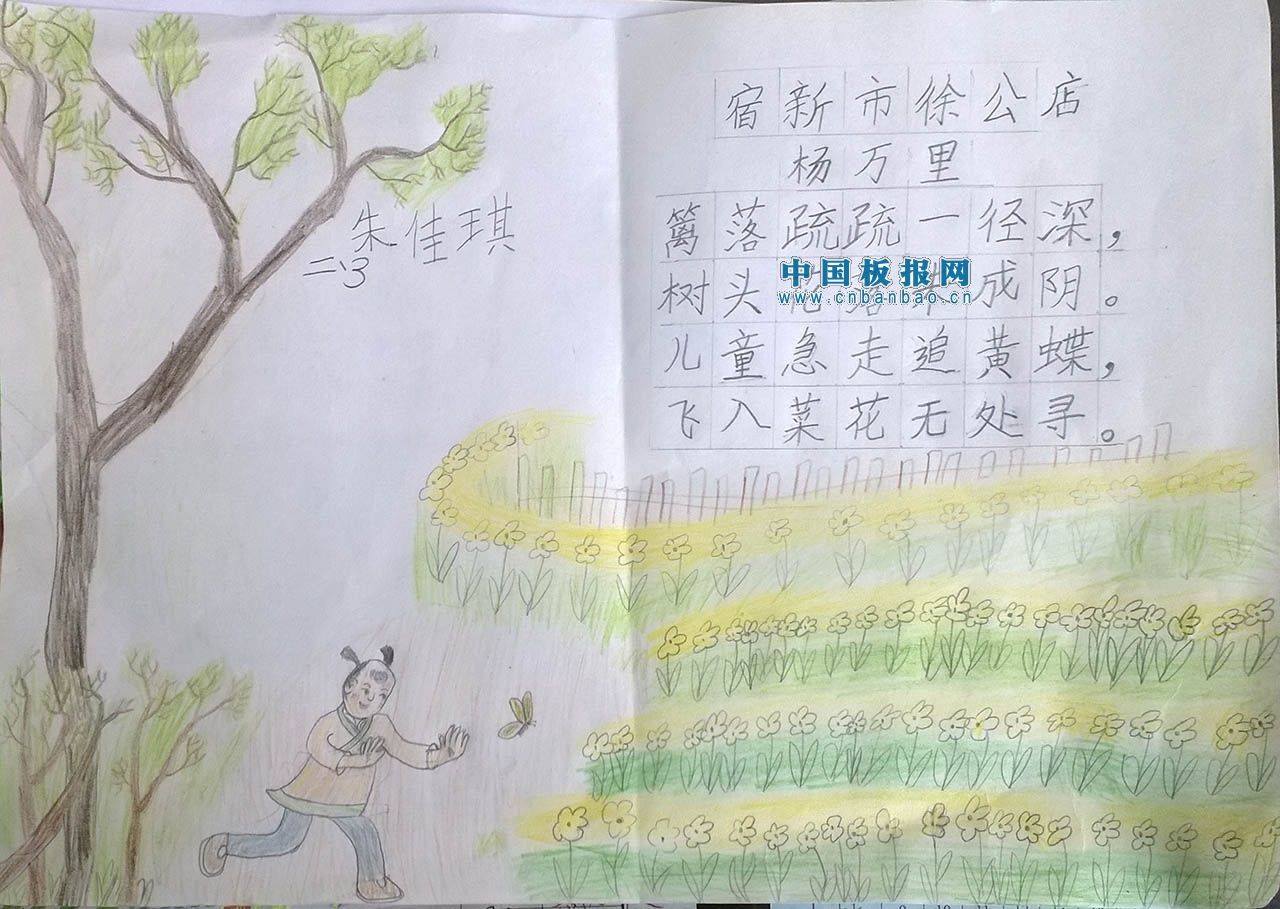 宿新市徐公店
杨万里
篱落疏疏一径深，
树头花落未成阴。
儿童急走追黄蝶，
飞入菜花无处寻。
朱佳琪
二、3
中国板报网
www.cnbanbao.cn